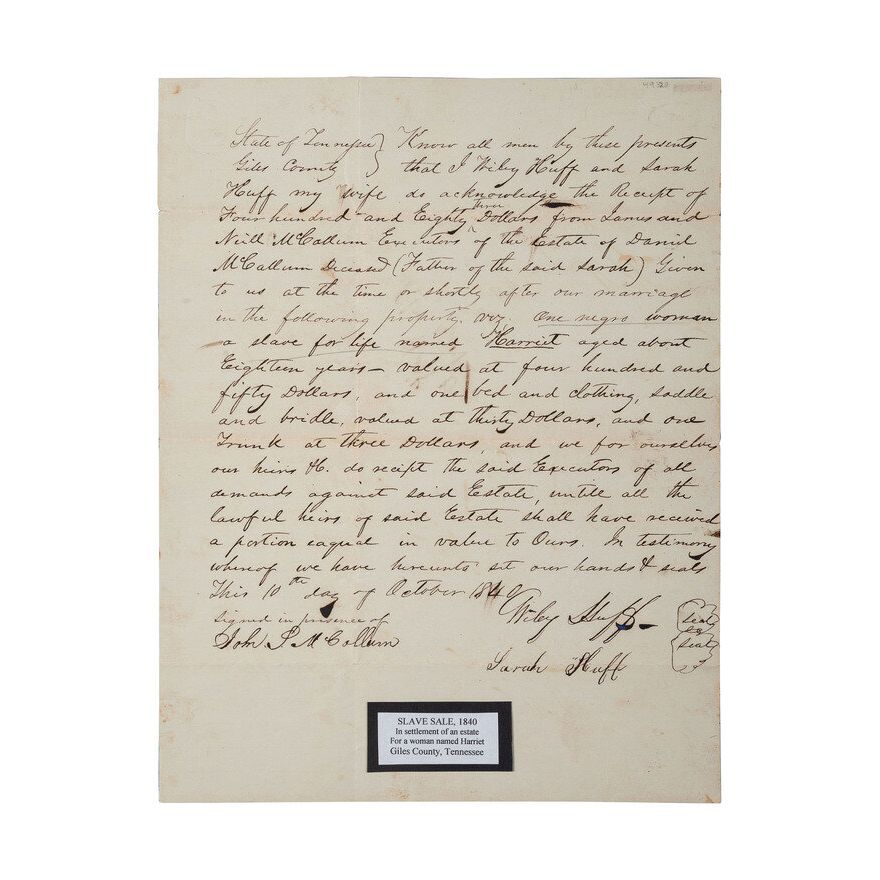 4920
State of Tennessee } Know all men by these presents
Giles County } that I Wiley Huff and Sarah
Huff my wife do acknowledge the Receipt of
three
Four hundred and Eighty Dollars from James and
Neill McCallum Executors of the Estate of Daniel
McCallum Deceased (Father of the said Sarah) Given
to us at the time or shortly after our marriage
in the following property, viz. One negro woman
a slave for life named Harriet aged about
Eighteen years – valued at four hundred and
fifty Dollars, and one bed and clothing, saddle
and bridle, valued at thirty Dollars, and one
Trunk at three Dollars, and we for ourselves
our heirs &c. do receipt the said Executors of all
demands against said Estate, untill all the
lawful heirs of said Estate shall have received
a portion eaqual in value to Ours. In testimony
whereof we have hereunto set our hands & seals
This 10th day of October 1840
Signed in presence of
Wiley Huff (seal)
John P. McCallum
Sarah Huff (seal)
SLAVE SALE, 1840
In settlement of an estate
For a woman named Harriet
Giles County, Tennessee